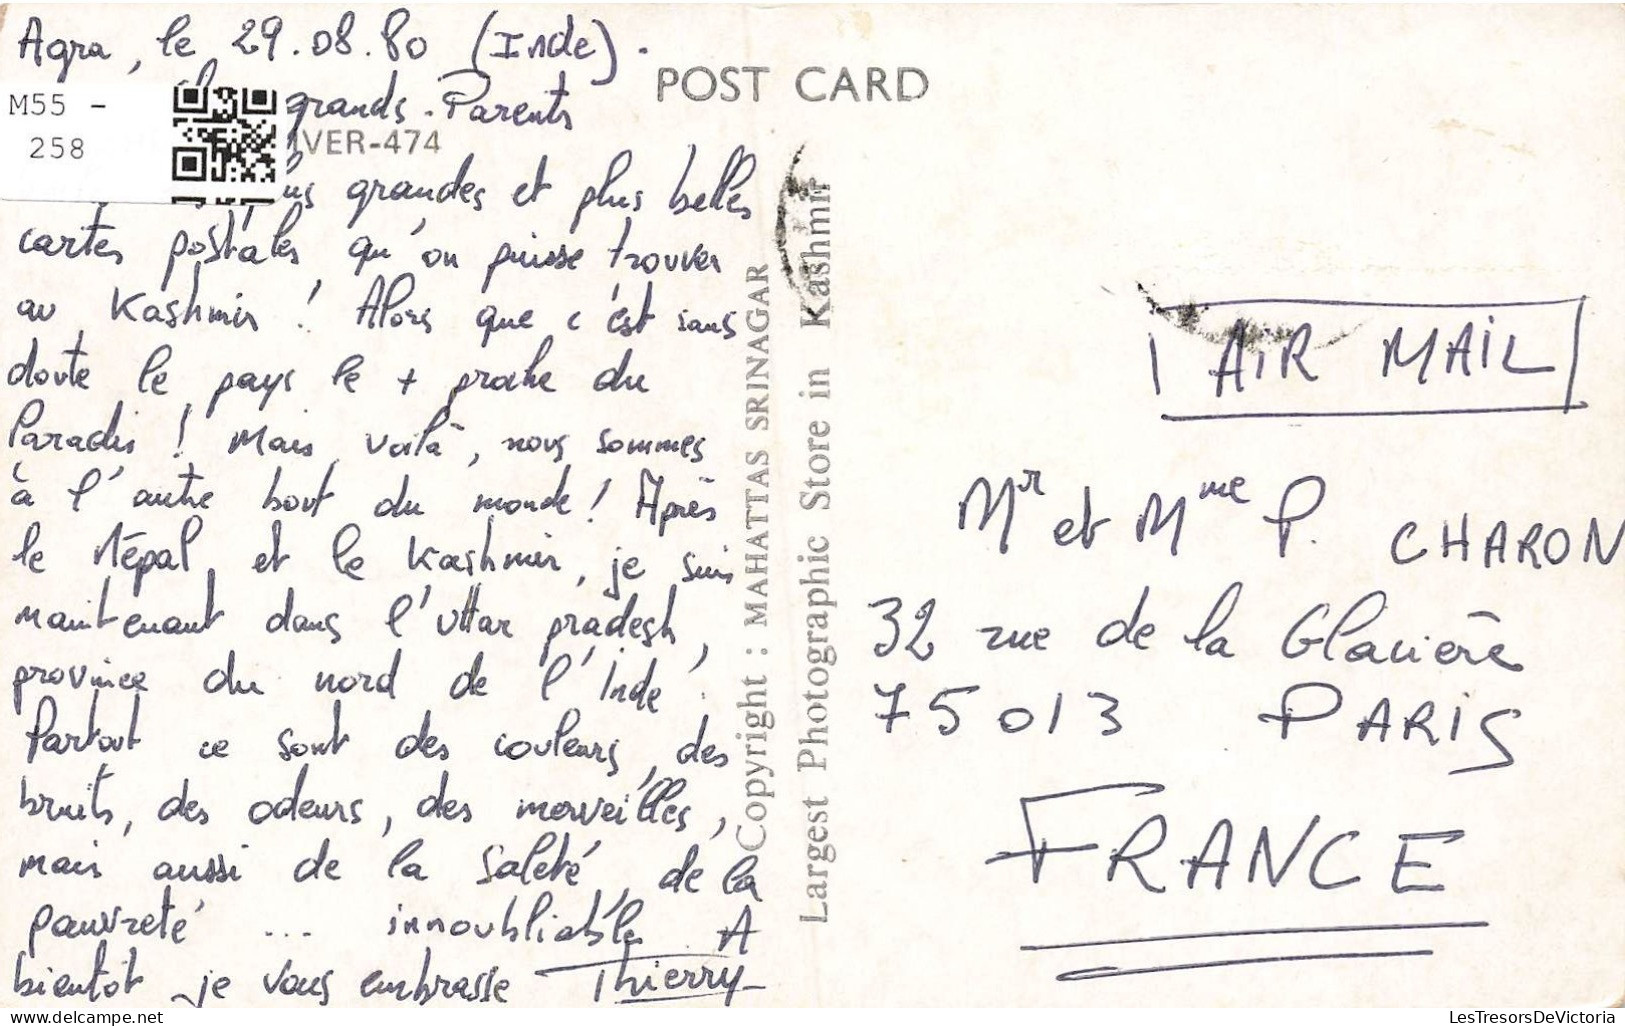 Agra, le 29.08.80 (Inde).
grands-Parents
M55 -
258
VER-474
grandes et plus belles
cartes postales qu'on puisse trouver
au Kashmir ! Alors que c'est sans
doute le pays le + proche du
Paradis ! Mais voilà, nous sommes
à l'autre bout du monde ! Après
le Népal et le Kashmir, je suis
maintenant dans l'Uttar pradesh,
province du nord de l'Inde.
Partout ce sont des couleurs, des
bruits, des odeurs, des merveilles,
mais aussi de la saleté, de la
pauvreté ... innoubliable. A
bientôt je vous embrasse Thierry
POST CARD
Copyright : MAHATTAS SRINAGAR
Largest Photographic Store in Kashmir
AIR MAIL
Mr et Mme P. CHARON
32 rue de la Glacière
75013 PARIS
FRANCE
delcampe.net
LesTresorsDeVictoria